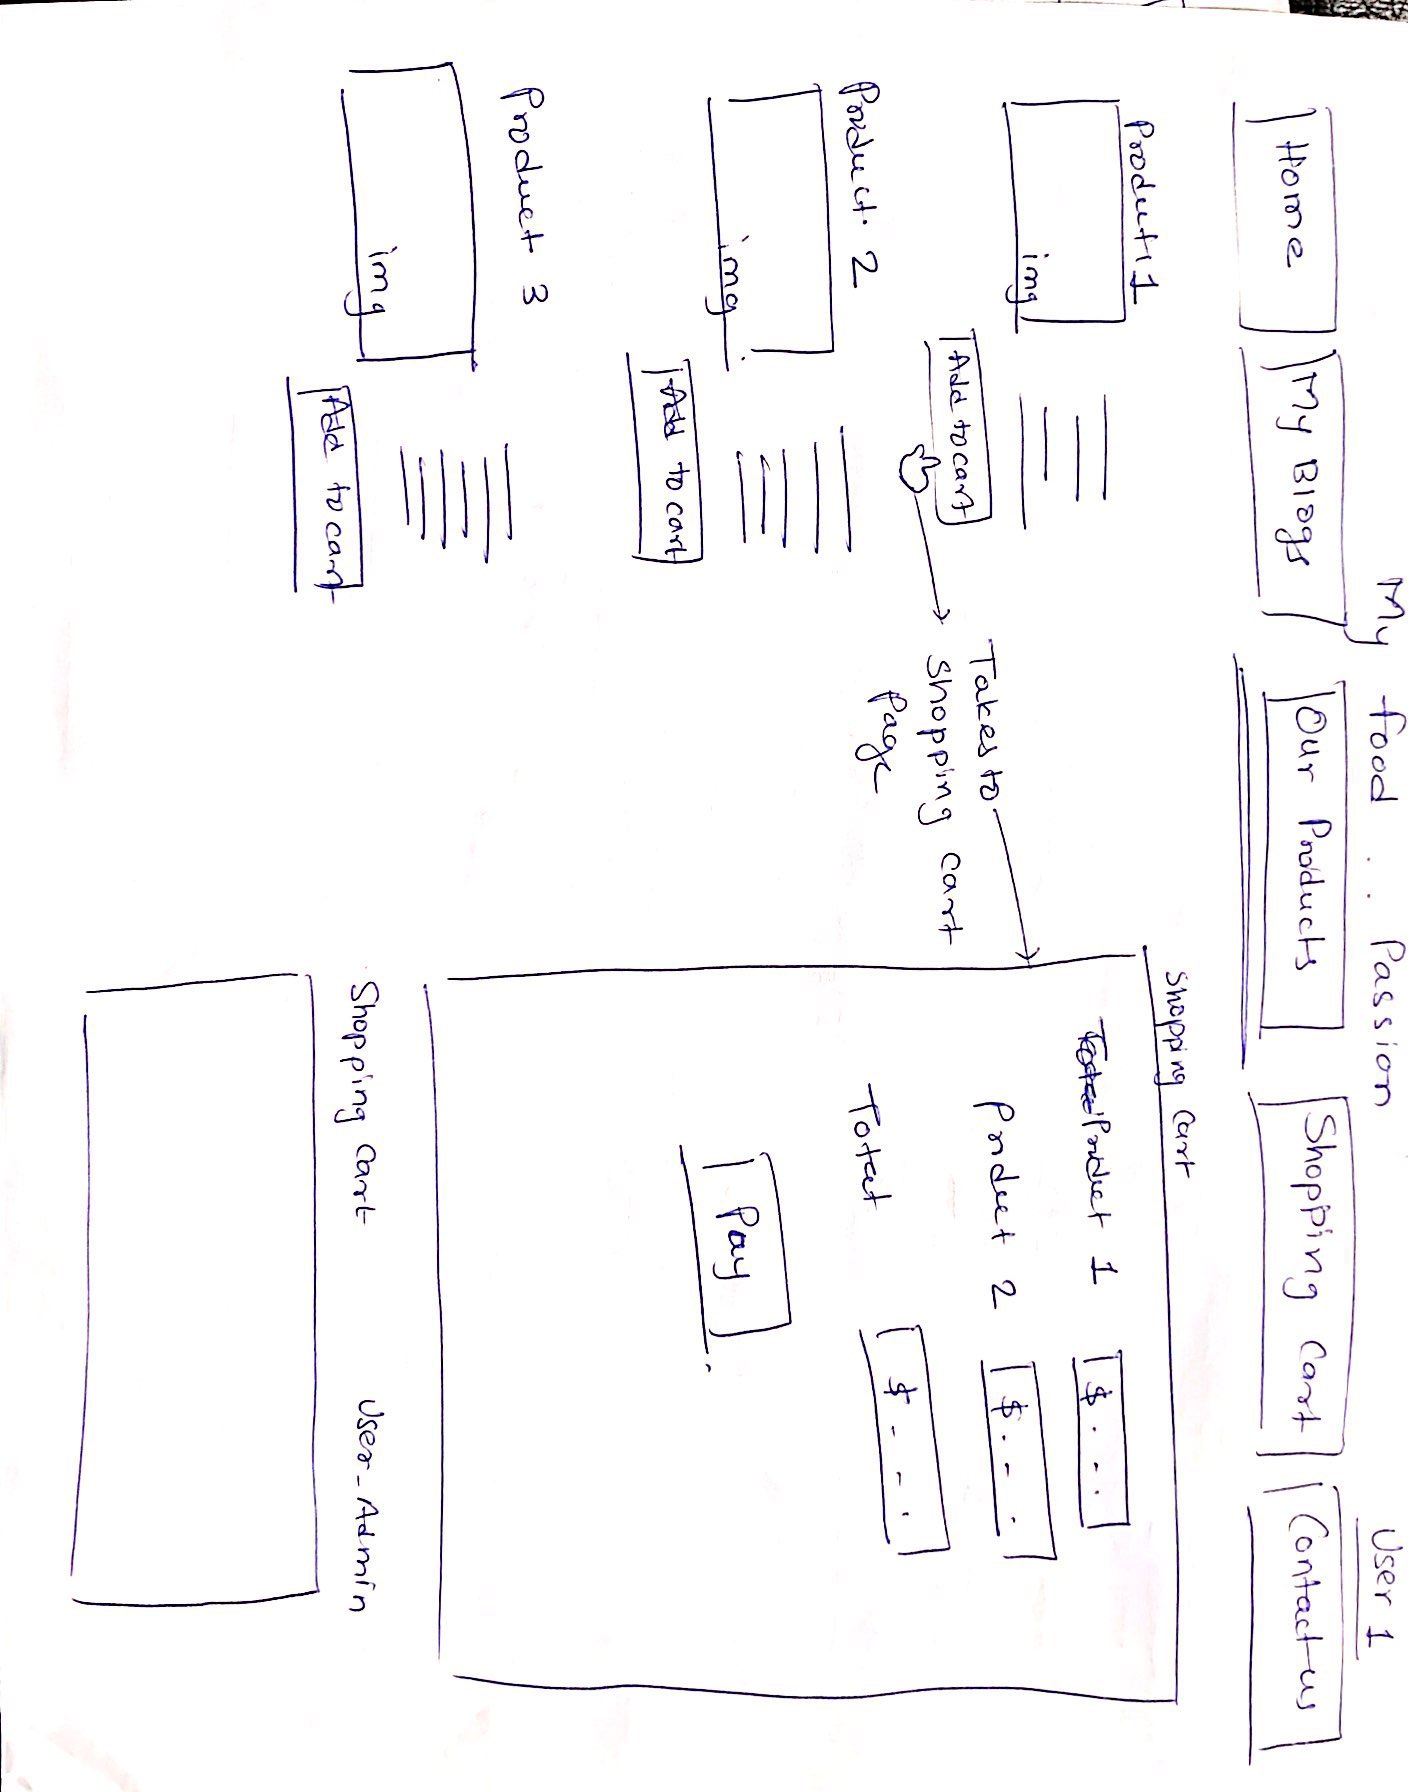 My food . . Passion
User 1
Home
My Blogs
Our Products
Shopping Cart
Contact us
Product 1
img
Add to cart
Takes to
Shopping Cart
Page
Product 2
img
Add to cart
Product 3
img
Add to cart
Shopping Cart
Product 1 $ . - .
Product 2 $ . - .
Total $ - - .
Pay
Shopping Cart
User - Admin